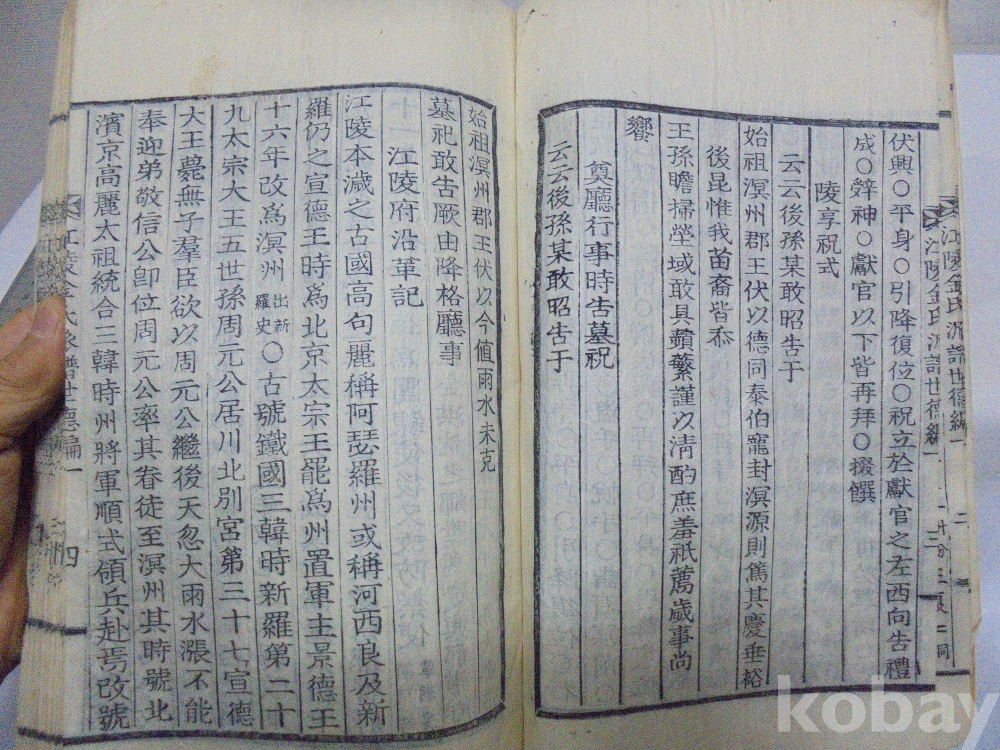 伏興○平身○引降復位○祝立於獻官之左西向告禮
成○辤神○獻官以下皆再拜○掇饌
陵享祝式
云云後孫某敢昭告于
始祖溟州郡王伏以德同泰伯寵封溟源則篤其慶垂裕
後昆惟我苗裔皆忝
王孫瞻掃塋域敢具蘋蘩謹以淸酌庶羞祇薦歲事尚
饗
奠廳行事時告墓祝
云云後孫某敢昭告于
始祖溟州郡王伏以今値雨水未克
墓祀敢告厥由降格廳事
江陵府沿革記
江陵本濊之古國高句麗稱阿瑟羅州或稱河西良及新
羅仍之宣德王時爲北京太宗王罷爲州置軍主景德王
十六年改爲溟州出新羅史○古號鐵國三韓時新羅第二十
九太宗大王五世孫周元公居川北別宮第三十七宣德
大王薨無子羣臣欲以周元公繼後天忽大雨水漲不能
奉迎弟敬信公卽位周元公率其眷徒至溟州其時號北
濱京高麗太祖統合三韓時州將軍順式領兵赴焉改號
江陵金氏派譜世德編一
四
kobay